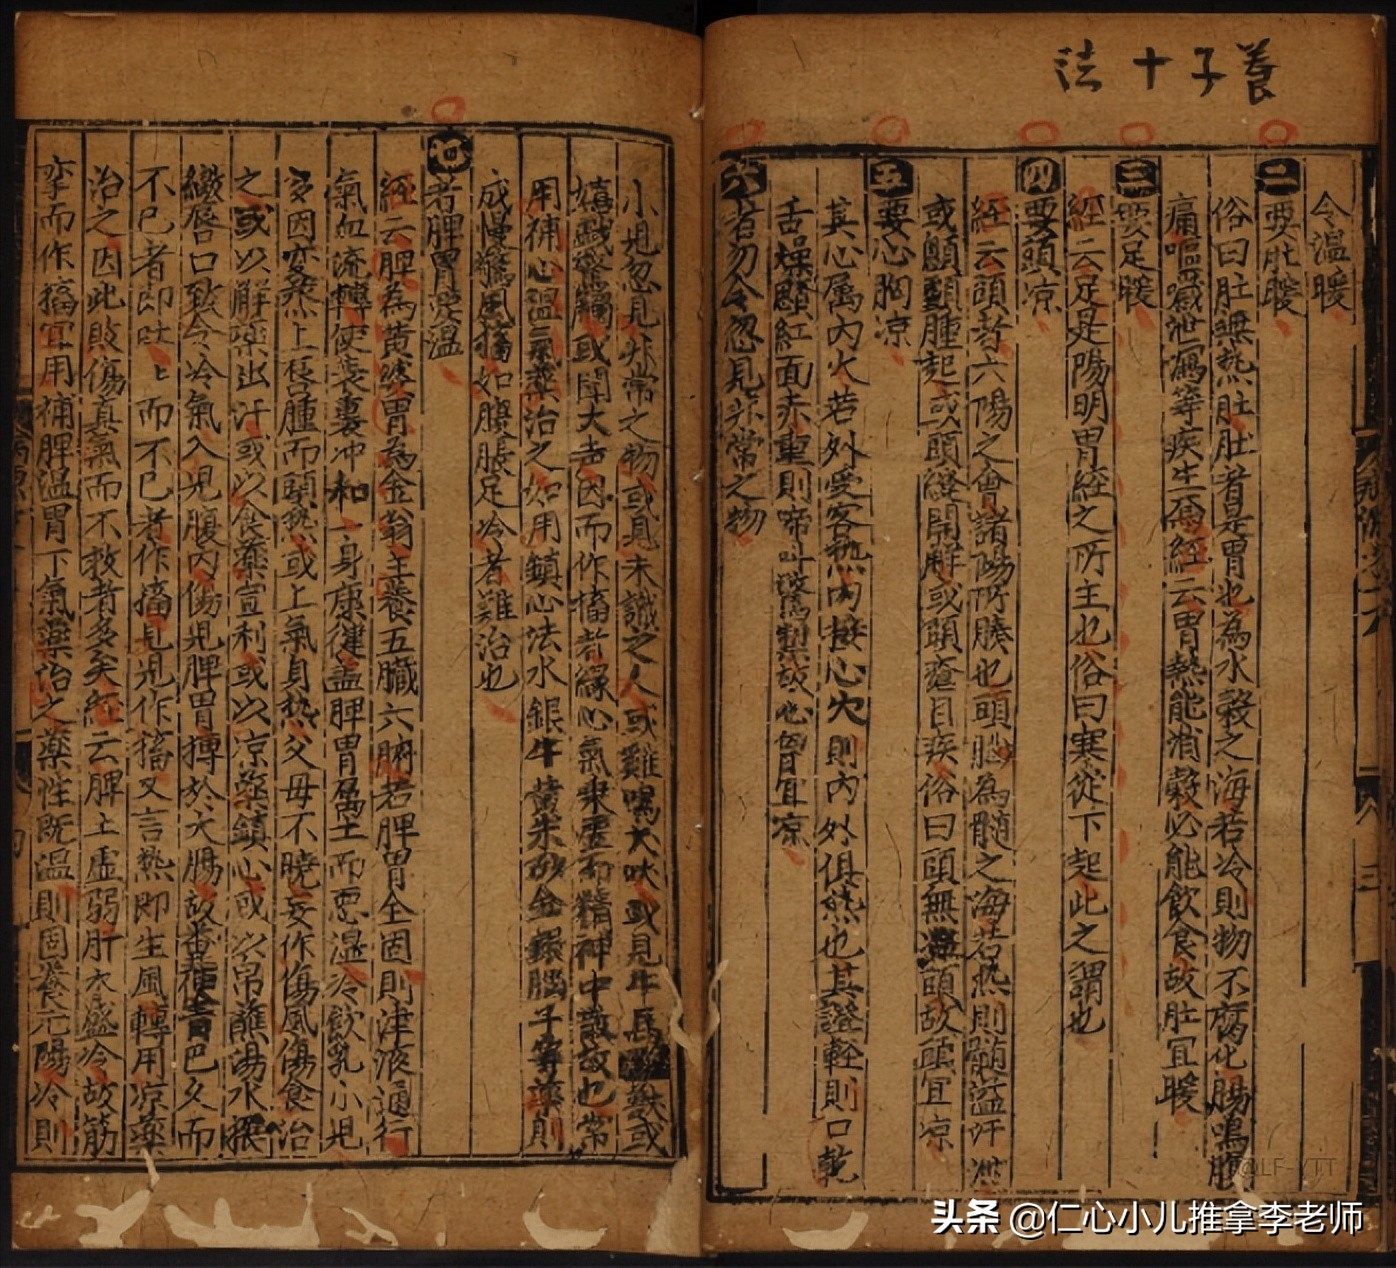 養子十法
令温暖
二要肚暖
俗曰肚無熱肚肚者是胃也為水穀之海若冷則物不腐化腸鳴腹
痛嘔噦泄瀉等疾生焉經云胃熱能消穀必能飲食故肚宜暖
三要足暖
經云足是陽明胃經之所主也俗曰寒從下起此之謂也
四要頭凉
經云頭者六陽之會諸陽所湊也頭腦為髓之海若熱則髓溢汗泄
或顖顱腫起或頭縫開解或頭瘡目疾俗曰頭無頭故頭宜凉
五要心胸凉
其心屬内火若外受客熱内接心穴則内外俱熱也其證輕則口乾
舌燥腮紅面赤重則啼叫驚掣故心胸宜凉
六者勿令忽見非常之物
小兒忽見非常之物或見未識之人或雞鳴犬吠或見牛馬獸或
嬉戲驚觸或聞大声因而作搐者緣心氣乗虚而精神中散故也常
用補心温氣藥治之如用鎮心法水銀牛黄朱砂金銀腦子等藥則
成慢驚風搐如腹脹足冷者難治也
七者脾胃愛温
經云脾為黄婆胃為金翁主養五臟六腑若脾胃全固則津液通行
氣血流轉使表裏冲和一身康健盖脾胃属土而悪湿冷飲乳小兒
多因変蒸上唇腫而頭熱或上氣身熱父母不曉妄作傷風傷食治
之或以解藥出汗或以食藥宣利或以凉藥鎮心或以帛蘸湯水搌
繳唇口致令冷氣入兒腹内傷兒脾胃搏於大腸故巴久而
不已者即吐吐而不已者作搐見兒作搐又言熱即生風轉用凉藥
治之因此敗傷真氣而不救者多矣經云脾土虚弱肝木盛冷故筋
挛而作搐宜用補脾温胃下氣藥治之藥性既温則固養元陽冷則
三
頭条 @仁心小儿推拿李老师